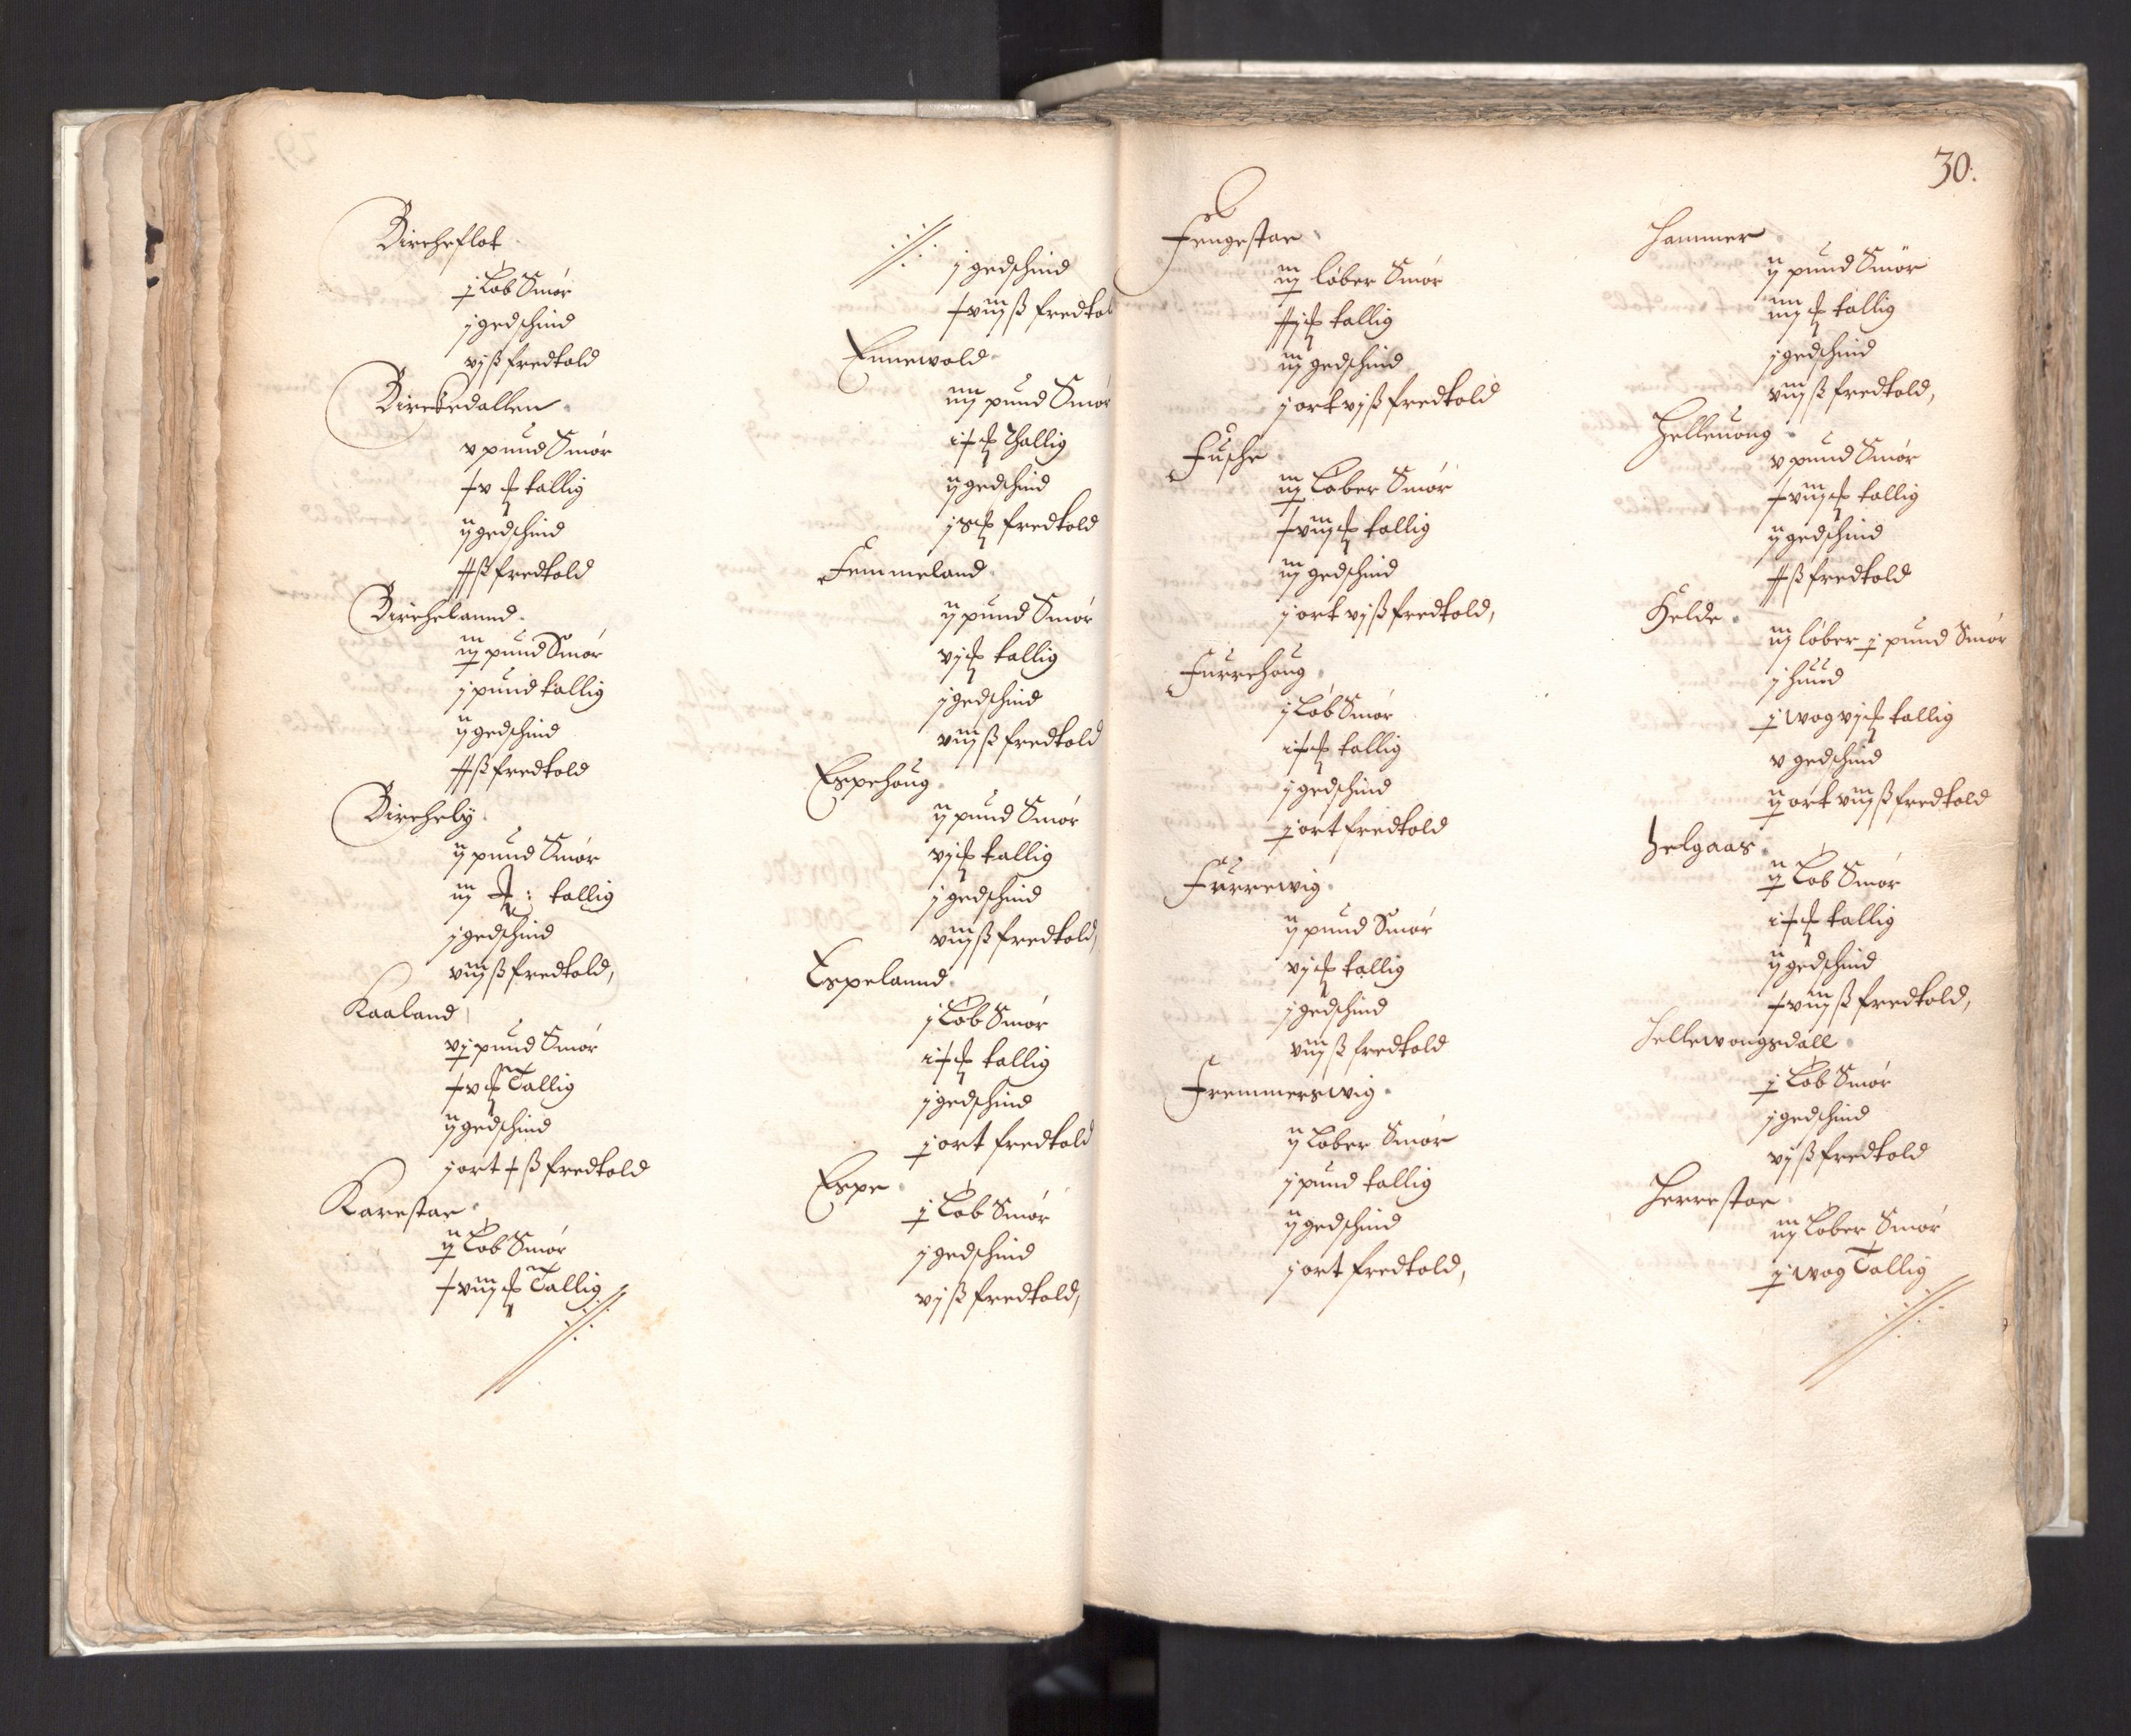 Bircheflot
j Løb Smør
j gedschind
vj ß fredtold
Birckedallen
v pund Smør
xv ℔ tallig
ij gedschind
xx ß fredtold
Birchelannd
iij pund Smør
j pund tallig
ij gedschind
xx ß fredtold
Birchely
ij pund Smør
iij ℔: tallig
j gedschind
viij ß fredtold,
Kaaland
vj pund Smør
xv ℔ Tallig
ij gedschind
j ort x ß fredtold
Karestae
ij Løb Smør
xviij ℔ Tallig
j gedschind
xviij ß fredtol
Ennewold
iiij pund Smør
ix ℔ Thallig
ij gedschind
j s℔ fredtold
Femmeland
ij pund Smør
vj ℔ tallig
j gedschind
viij ß fredtold
Espehoug
ij pund Smør
vj ℔ tallig
j gedschind
viij ß fredtold,
Espelannd
j Løb Smør
ix ℔ tallig
j gedschind
j ort fredtold
Espe
j Løb Smør
j gedschind
vj ß fredtold,
30.
Fengestae
iij løber Smør
xxj ℔ tallig
iij gedschind
j ort vj ß fredtold
Fusche
iij Løber Smør
xviij ℔ tallig
iij gedschind
j ort vj ß fredtold,
Furrehoug
j Løb Smør
ix ℔ tallig
j gedschind
j ort fredtold
Furrewig
ij pund Smør
vj ℔ tallig
j gedschind
viij ß fredtold
Fremmerswig
ij Løber Smør
j pund tallig
ij gedschind
j ort fredtold,
Hammer
ij pund Smør
iiij ℔ tallig
j gedschind
viij ß fredtold,
Helleuong
v pund Smør
xviij ℔ tallig
ij gedschind
xx ß fredtold
Helde
iij løber j pund Smør
j huud
j wog vj ℔ tallig
v gedschind
ij ort viij ß fredtold
Helgaas
ij Løb Smør
ix ℔ tallig
ij gedschind
xviij ß fredtold,
Hellewongsdall
j Løb Smør
j gedschind
vj ß fredtold
Herrestae
iij Løber Smør
j wog Tallig